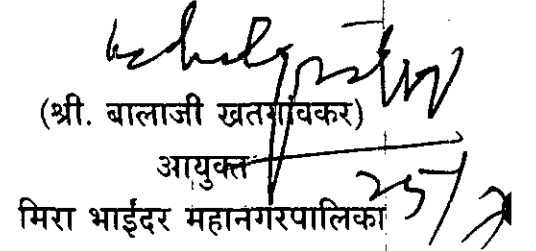 (श्री. बालाजी खतगांवकर)
आयुक्त
मिरा भाईंदर महानगरपालिका